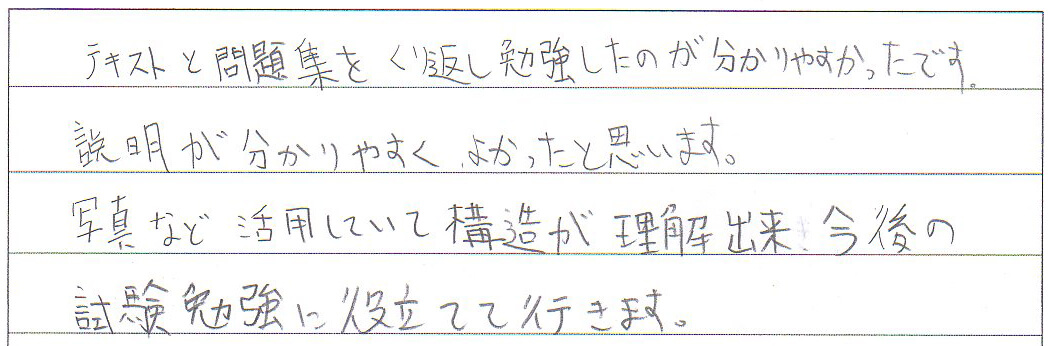 テキストと問題集をくり返し勉強したのが分かりやすかったです。
説明が分かりやすく、よかったと思います。
写真など活用していて構造が理解出来今後の
試験勉強に役立てて行きます。